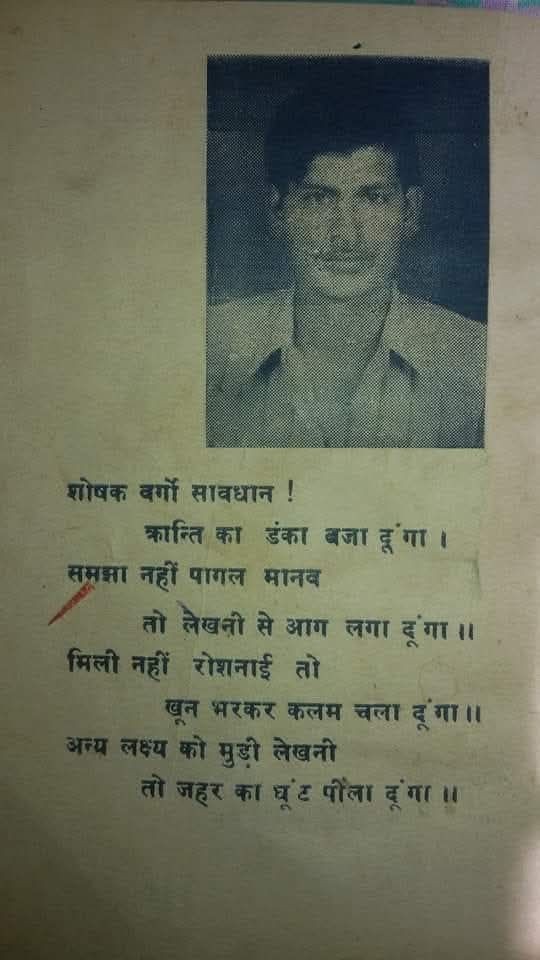 शोषक वर्गो सावधान !
क्रान्ति का डंका बजा दूंगा ।
समझा नहीं पागल मानव
तो लेखनी से आग लगा दूंगा ॥
मिली नहीं रोशनाई तो
खून भरकर कलम चला दूंगा ॥
अन्य लक्ष्य को मुड़ी लेखनी
तो जहर का घूंट पीला दूंगा ॥